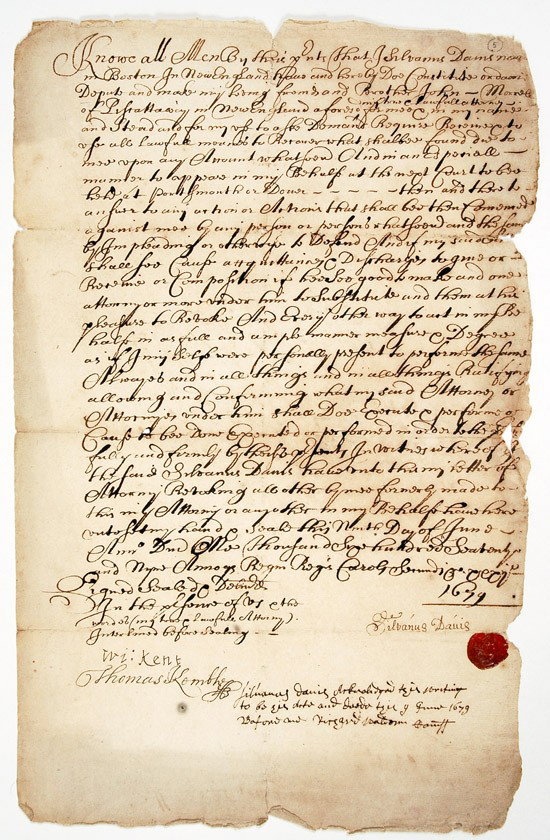 Knowe all Men By thes pnts That I Silvanus Davis now
in Boston In New England: have and hereby Doe Constitute or daine
Depute and make my loving friend and Brother John - 
of Piscattaway in New England aforesd my true & Lawfull attorny in my name
and Stead and for my use to aske Demand Require Recover to
use all Lawfull meanes to Recover what shallbee found due to
mee upon any Account whatsoever And in an Especiall
manner to appeare in my Behalf at the next Court to bee
held at Portsmouth or Dover - - - - - then and there to
answer to any action or Actions that shall bee then Comenced
against mee By any person or persons whatsoever and the same
by Impleading or otherwise to Defend And if my said
shall see Cause acquittances & Discharges to give or
Receive or Composition if hee see good to make and one
attorny or more under him to Substitute and them at his
pleasure to Revoke And Every other way to act in my Be
half in as full and ample manner measure & Degree
as if I my Self were personally present to performe the same
Alwayes and in all things and in all things Ratifying
allowing and Confirming what my said Attorney or
Attornyes under him shall Doe Execute & performe or
Cause to bee Done Executed or performed in order to the
fully and firmly by these psents In witnes whereof I
the said Silvanus Davis have unto this my letter of
Attorny Revoking all other by mee formerly made to
this my Attorny or any other in my Behalf have here
unto set my hand & seale this Ninth Day of June -
Anno Dmi One Thousand Six hundred Seaventy
and Nyne Annoq Regni Regis Caroly Secundi &
1679
Signed Sealed & Deliverd
In the psence of us & the
words (my true lawfull Attorny)
Interlined before Sealing -
Silvanus Davis
Wi: Kent
Thomas Kemble
Silvanus Davis Acknowledged this writing
to be his Acte and deede this 9 June 1679
Before me Richard